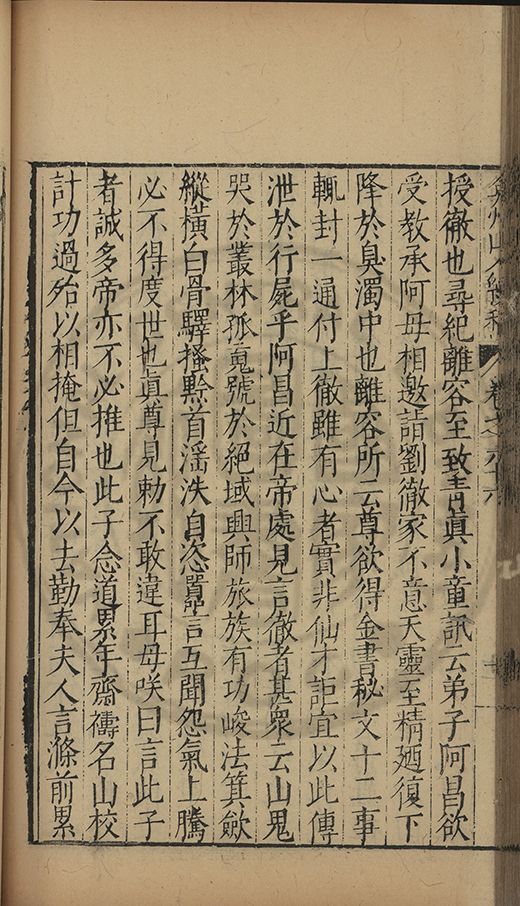 弇州山人續稿 卷之六十六
授徹也尋紀離容至致青眞小童訊云弟子阿昌欲
受教承阿母相邀詣劉徹家不意天靈至精廼復下
降於臭濁中也離容所云尊欲得金書秘文十二事
輒封一通付上徹雖有心者實非仙才詎宜以此傳
泄於行屍乎阿昌近在帝處見言徹者甚衆云山鬼
哭於叢林孤䰟號於絕域興師旅族有功峻法箕歛
縱橫白骨驛搔黔首滛泆自恣嚚言互聞怨氣上騰
必不得度世也眞尊見勅不敢違耳母咲曰言此子
者誠多帝亦不必推也此子念道累年齋禱名山校
計功過殆以相掩但自今以去勤奉夫人言滌前累